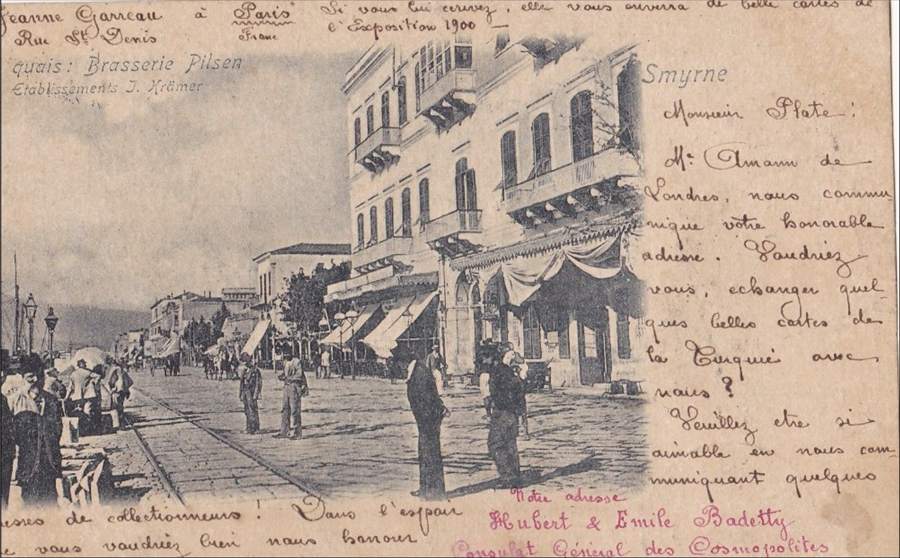 Jeanne Garreau à Paris Si vous lui écrivez, elle vous enverra de belle cartes de
Rue St Denis France l'Exposition 1900 —
quais: Brasserie Pilsen
Etablissements J. Krämer
Smyrne
Monsieur Plate!
Mr. Amann de
Londres, nous commu-
nique votre honorable
adresse. Vaudriez
vous, echanger quel-
ques belles cartes de
la Turquie avec
nous?
Veuillez etre si
aimable en nous com-
muniquant quelques
esses de collectionneurs! Dans l'espoir
e vous vaudriez bien nous honorer
Notre adresse
Hubert & Emile Badetty
Consulat Général des Cosmopolites